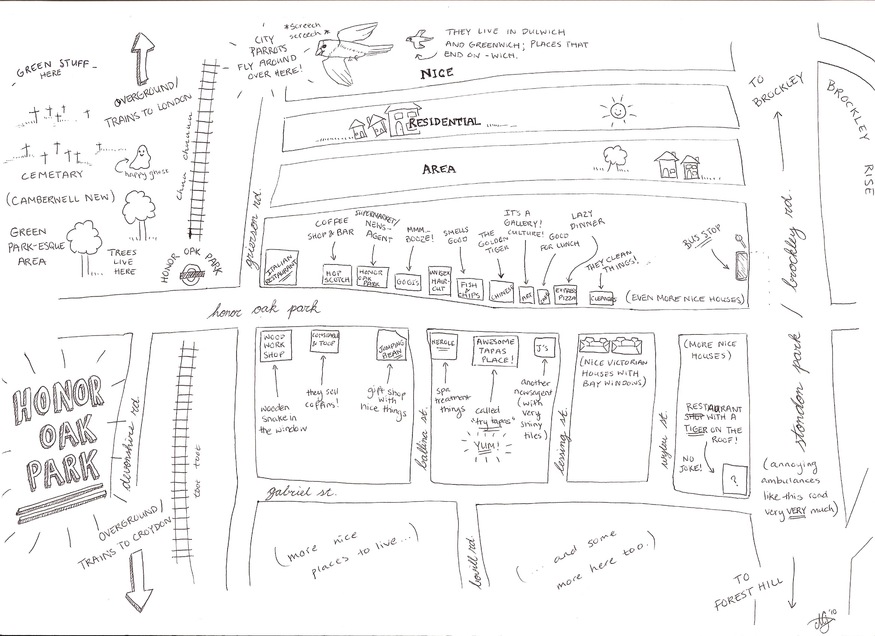 GREEN STUFF
HERE
OVERGROUND/
TRAINS TO LONDON
CEMETARY
(CAMBERWELL NEW)
happy ghost
GREEN
PARK-ESQUE
AREA
TREES
LIVE
HERE
HONOR OAK PARK
CITY
PARROTS
FLY AROUND
OVER HERE!
*screech
screech*
THEY LIVE IN DULWICH
AND GREENWICH; PLACES THAT
END ON -WICH.
NICE
RESIDENTIAL
AREA
TO
BROCKLEY
BROCKLEY
RISE
grierson rd.
COFFEE
SHOP & BAR
SUPERMARKET/
NEWS-
AGENT
MMM...
BOOZE!
SMELLS
GOOD
THE
GOLDEN
TIGER
IT'S A
GALLERY!
CULTURE!
GOOD
FOR LUNCH
LAZY
DINNER
THEY CLEAN
THINGS!
BUS STOP
ITALIAN
RESTAURANT
HOP
SCOTCH
HONOR
OAK
PARK
GOGI'S
UNISEX
HAIR-
CUT
FISH
&
CHIPS
CHINESE
ART
EXPRESS
PIZZA
CLEANERS
(EVEN MORE NICE HOUSES)
honor oak park
stondon park / brockley rd.
HONOR
OAK
PARK
devonshire rd.
toot toot
WOOD
WORK
SHOP
wooden
snake in
the window
they sell
coffins!
JUMPING
BEAN
gift shop
with
nice things
ballina st.
NEROLI
spa
treatment
things
AWESOME
TAPAS
PLACE!
called
"try tapas"
YUM!
J'S
another
newsagent
(with
very
shiny
tiles)
lessing st.
(NICE VICTORIAN
HOUSES WITH
BAY WINDOWS)
(MORE NICE
HOUSES)
RESTAURANT
SHOP WITH A
TIGER ON THE
ROOF!
NO
JOKE!
?
(annoying
ambulances
like this road
very VERY much)
gabriel st.
OVERGROUND/
TRAINS TO CROYDON
(more nice
places to live...)
bovill rd.
(... and some
more here too.)
TO
FOREST HILL
'10